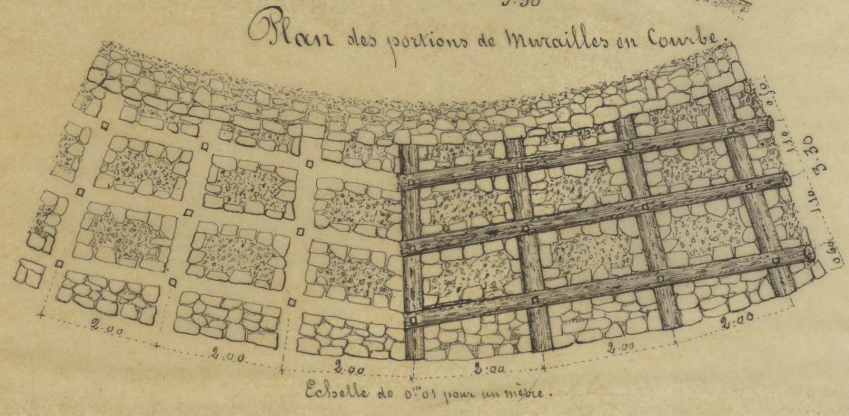 Plan des portions de Murailles en Courbe.
0.50
1.10
3.30
1.10
0.60
2.00
2.00
2.00
2.00
2.00
2.00
Echelle de 0ᵐ01 pour un mètre.